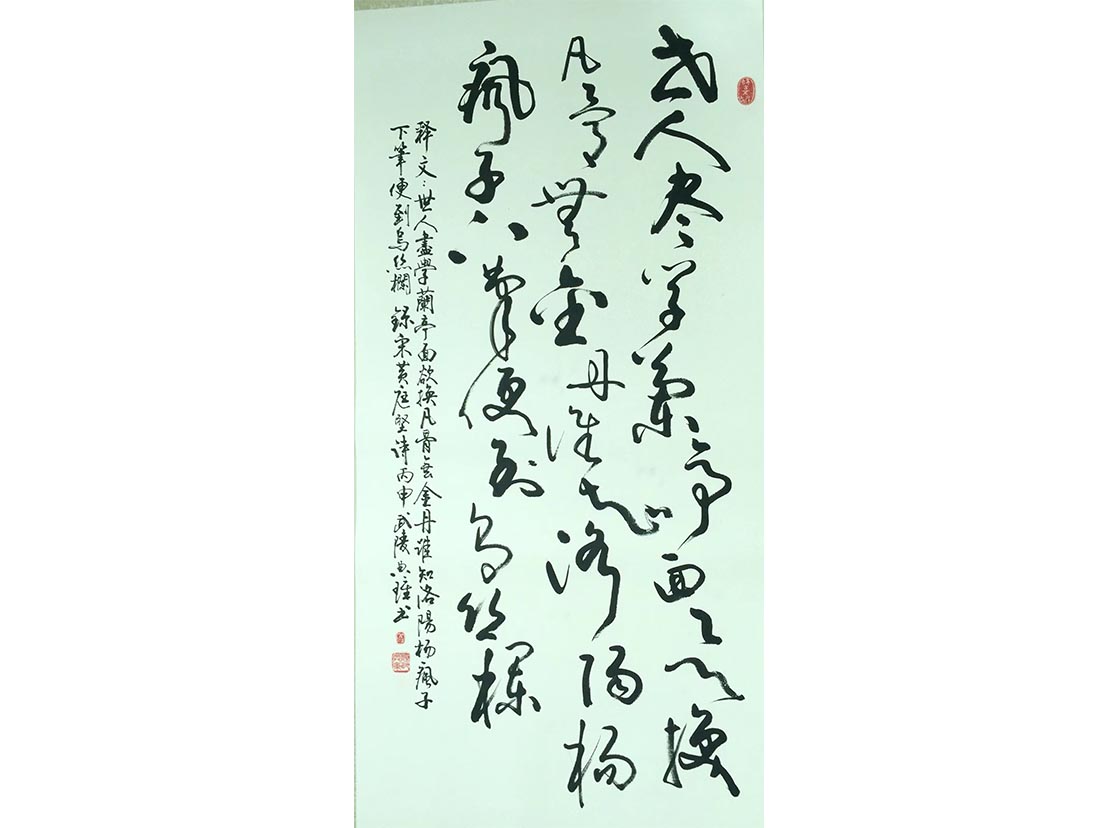 世人尽学兰亭面欲换
凡骨无金丹谁知洛阳杨
疯子下笔便到乌丝栏
释文：世人盡學蘭亭面欲換凡骨無金丹誰知洛陽杨瘋子
下筆便到烏絲欄 錄宋黃庭堅诗丙申武陵典瑾书